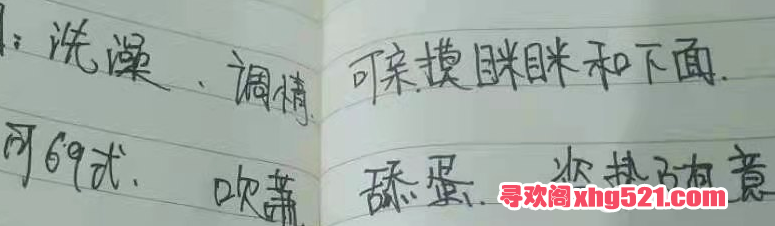 1:洗澡、调情.可亲摸眯眯和下面.
可69式、吹萧 舔蛋.姿势随意
寻欢阁xhg521.com